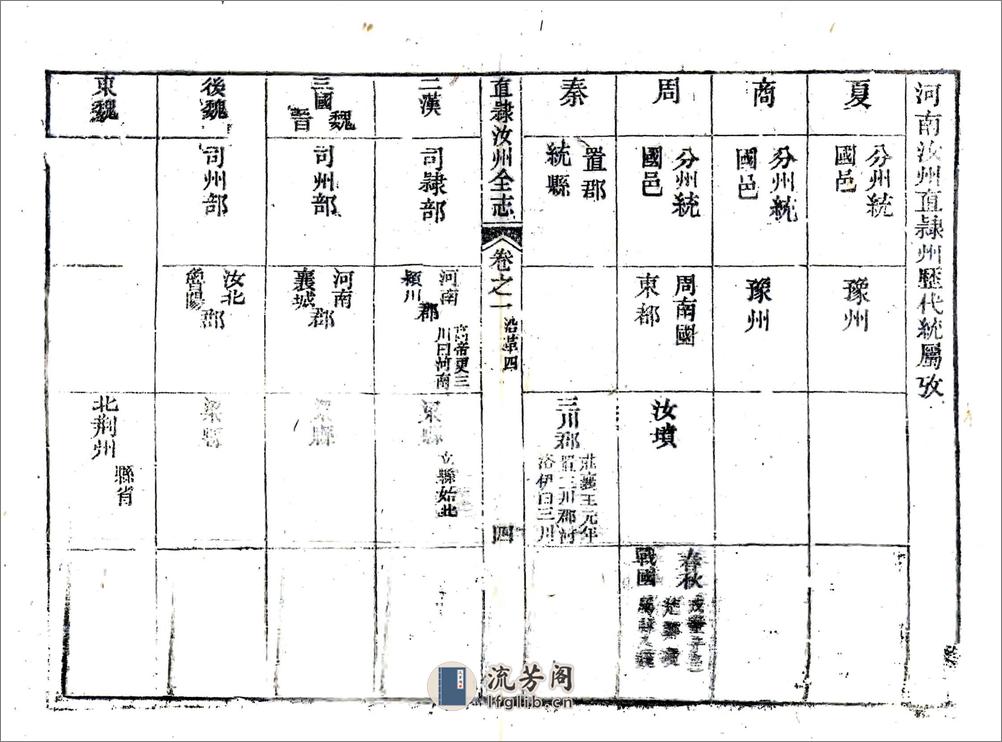 河南汝州直隸州歷代統屬攷
夏
分州統
國邑
豫州
商
分州統
國邑
豫州
周
分州統
國邑
周南國
東都
汝墳
春秋
戰國
秦
置郡
統縣
三川郡
莊襄王元年
置三川郡河
洛伊曰三川
直隸汝州全志
卷之一
沿革四
四
二漢
司隸部
河南
潁川
郡
高帝更三
川曰河南
梁縣
立縣始此
三國
魏
晋
司州部
河南
襄城
郡
梁縣
後魏
司州部
汝北
魯陽
郡
梁縣
東魏
北荆州
縣省
流芳阁
lfglib.cn